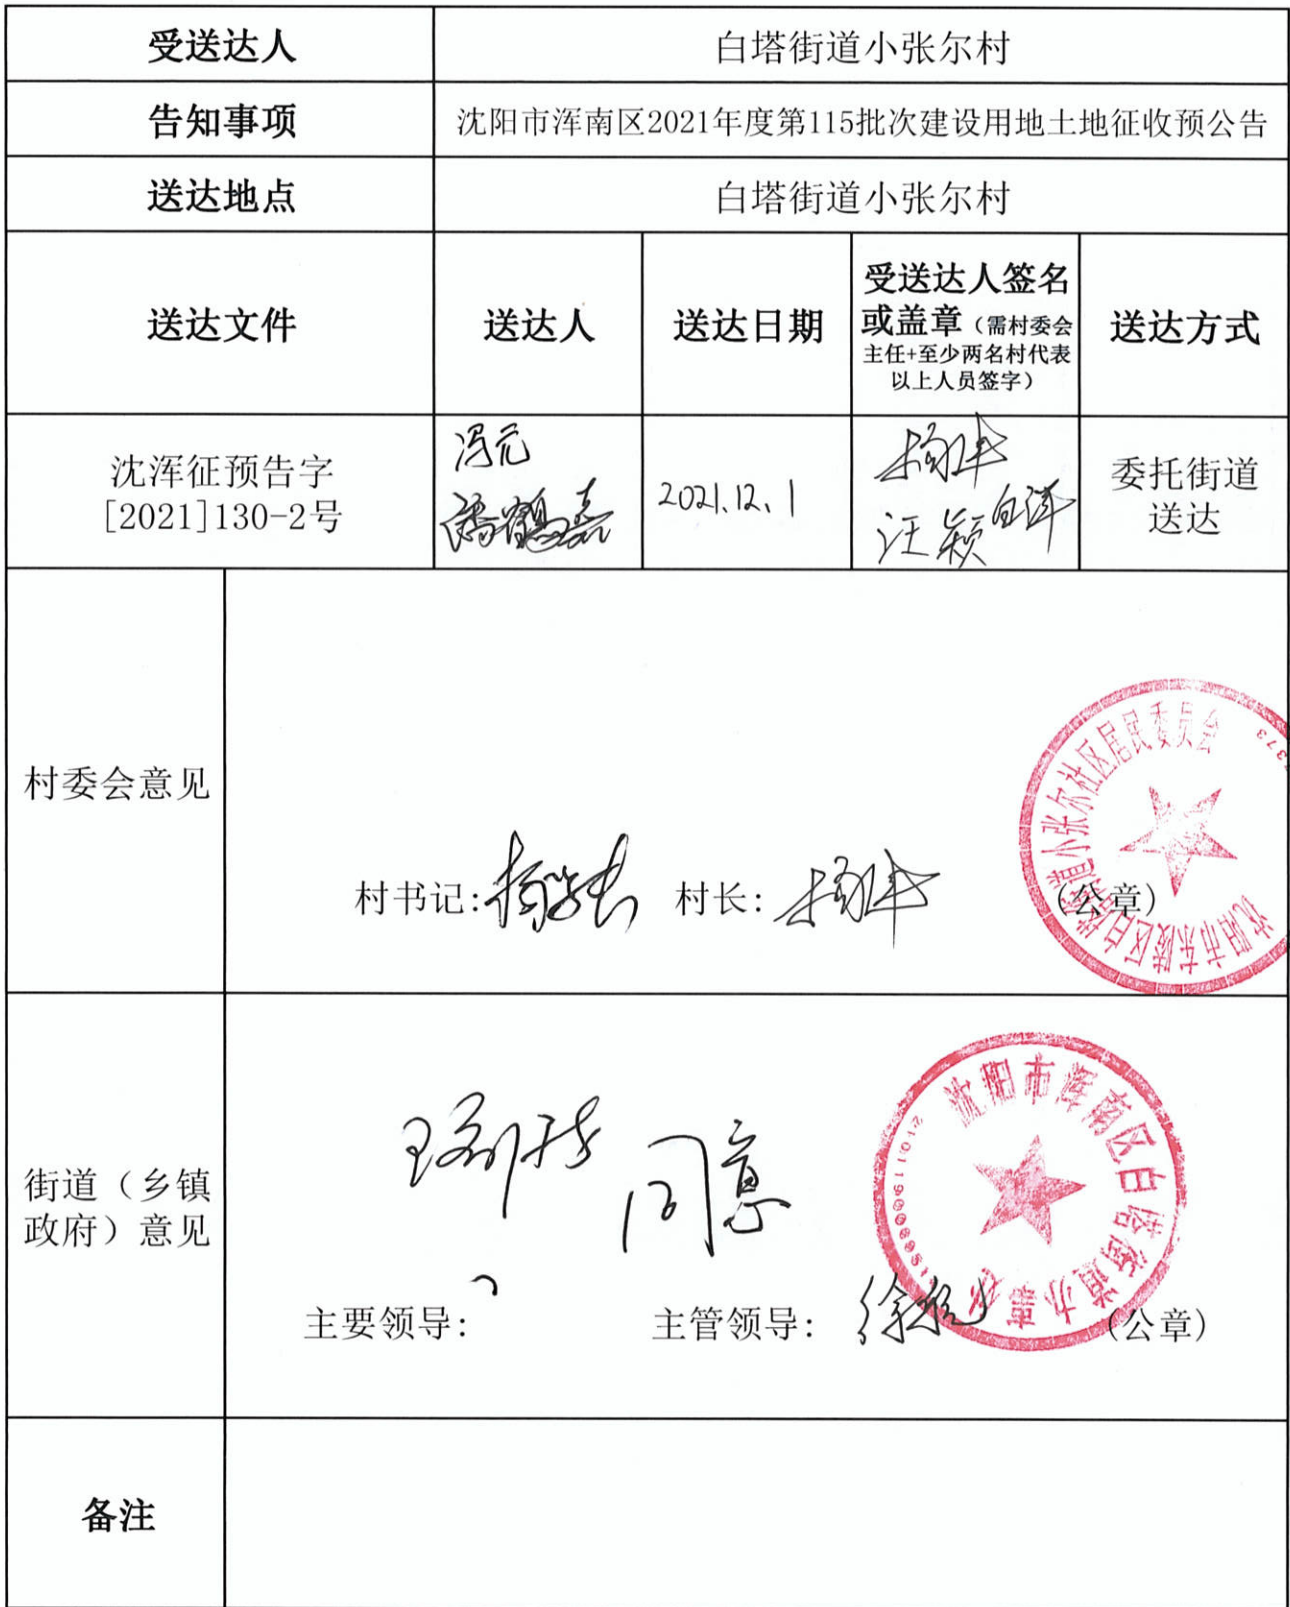 受送达人
白塔街道小张尔村
告知事项
沈阳市浑南区2021年度第115批次建设用地土地征收预公告
送达地点
白塔街道小张尔村
送达文件
送达人
送达日期
受送达人签名
或盖章（需村委会
主任+至少两名村代表
以上人员签字）
送达方式
沈浑征预告字
[2021]130-2号
冯元
潘鹤嘉
2021.12.1
汪颖
白洋
委托街道
送达
村委会意见
村书记:
村长:
（公章）
沈阳市东陵区白塔街道小张尔社区居民委员会
街道（乡镇
政府）意见
同意
主要领导:
主管领导:
（公章）
沈阳市浑南区白塔街道办事处
备注